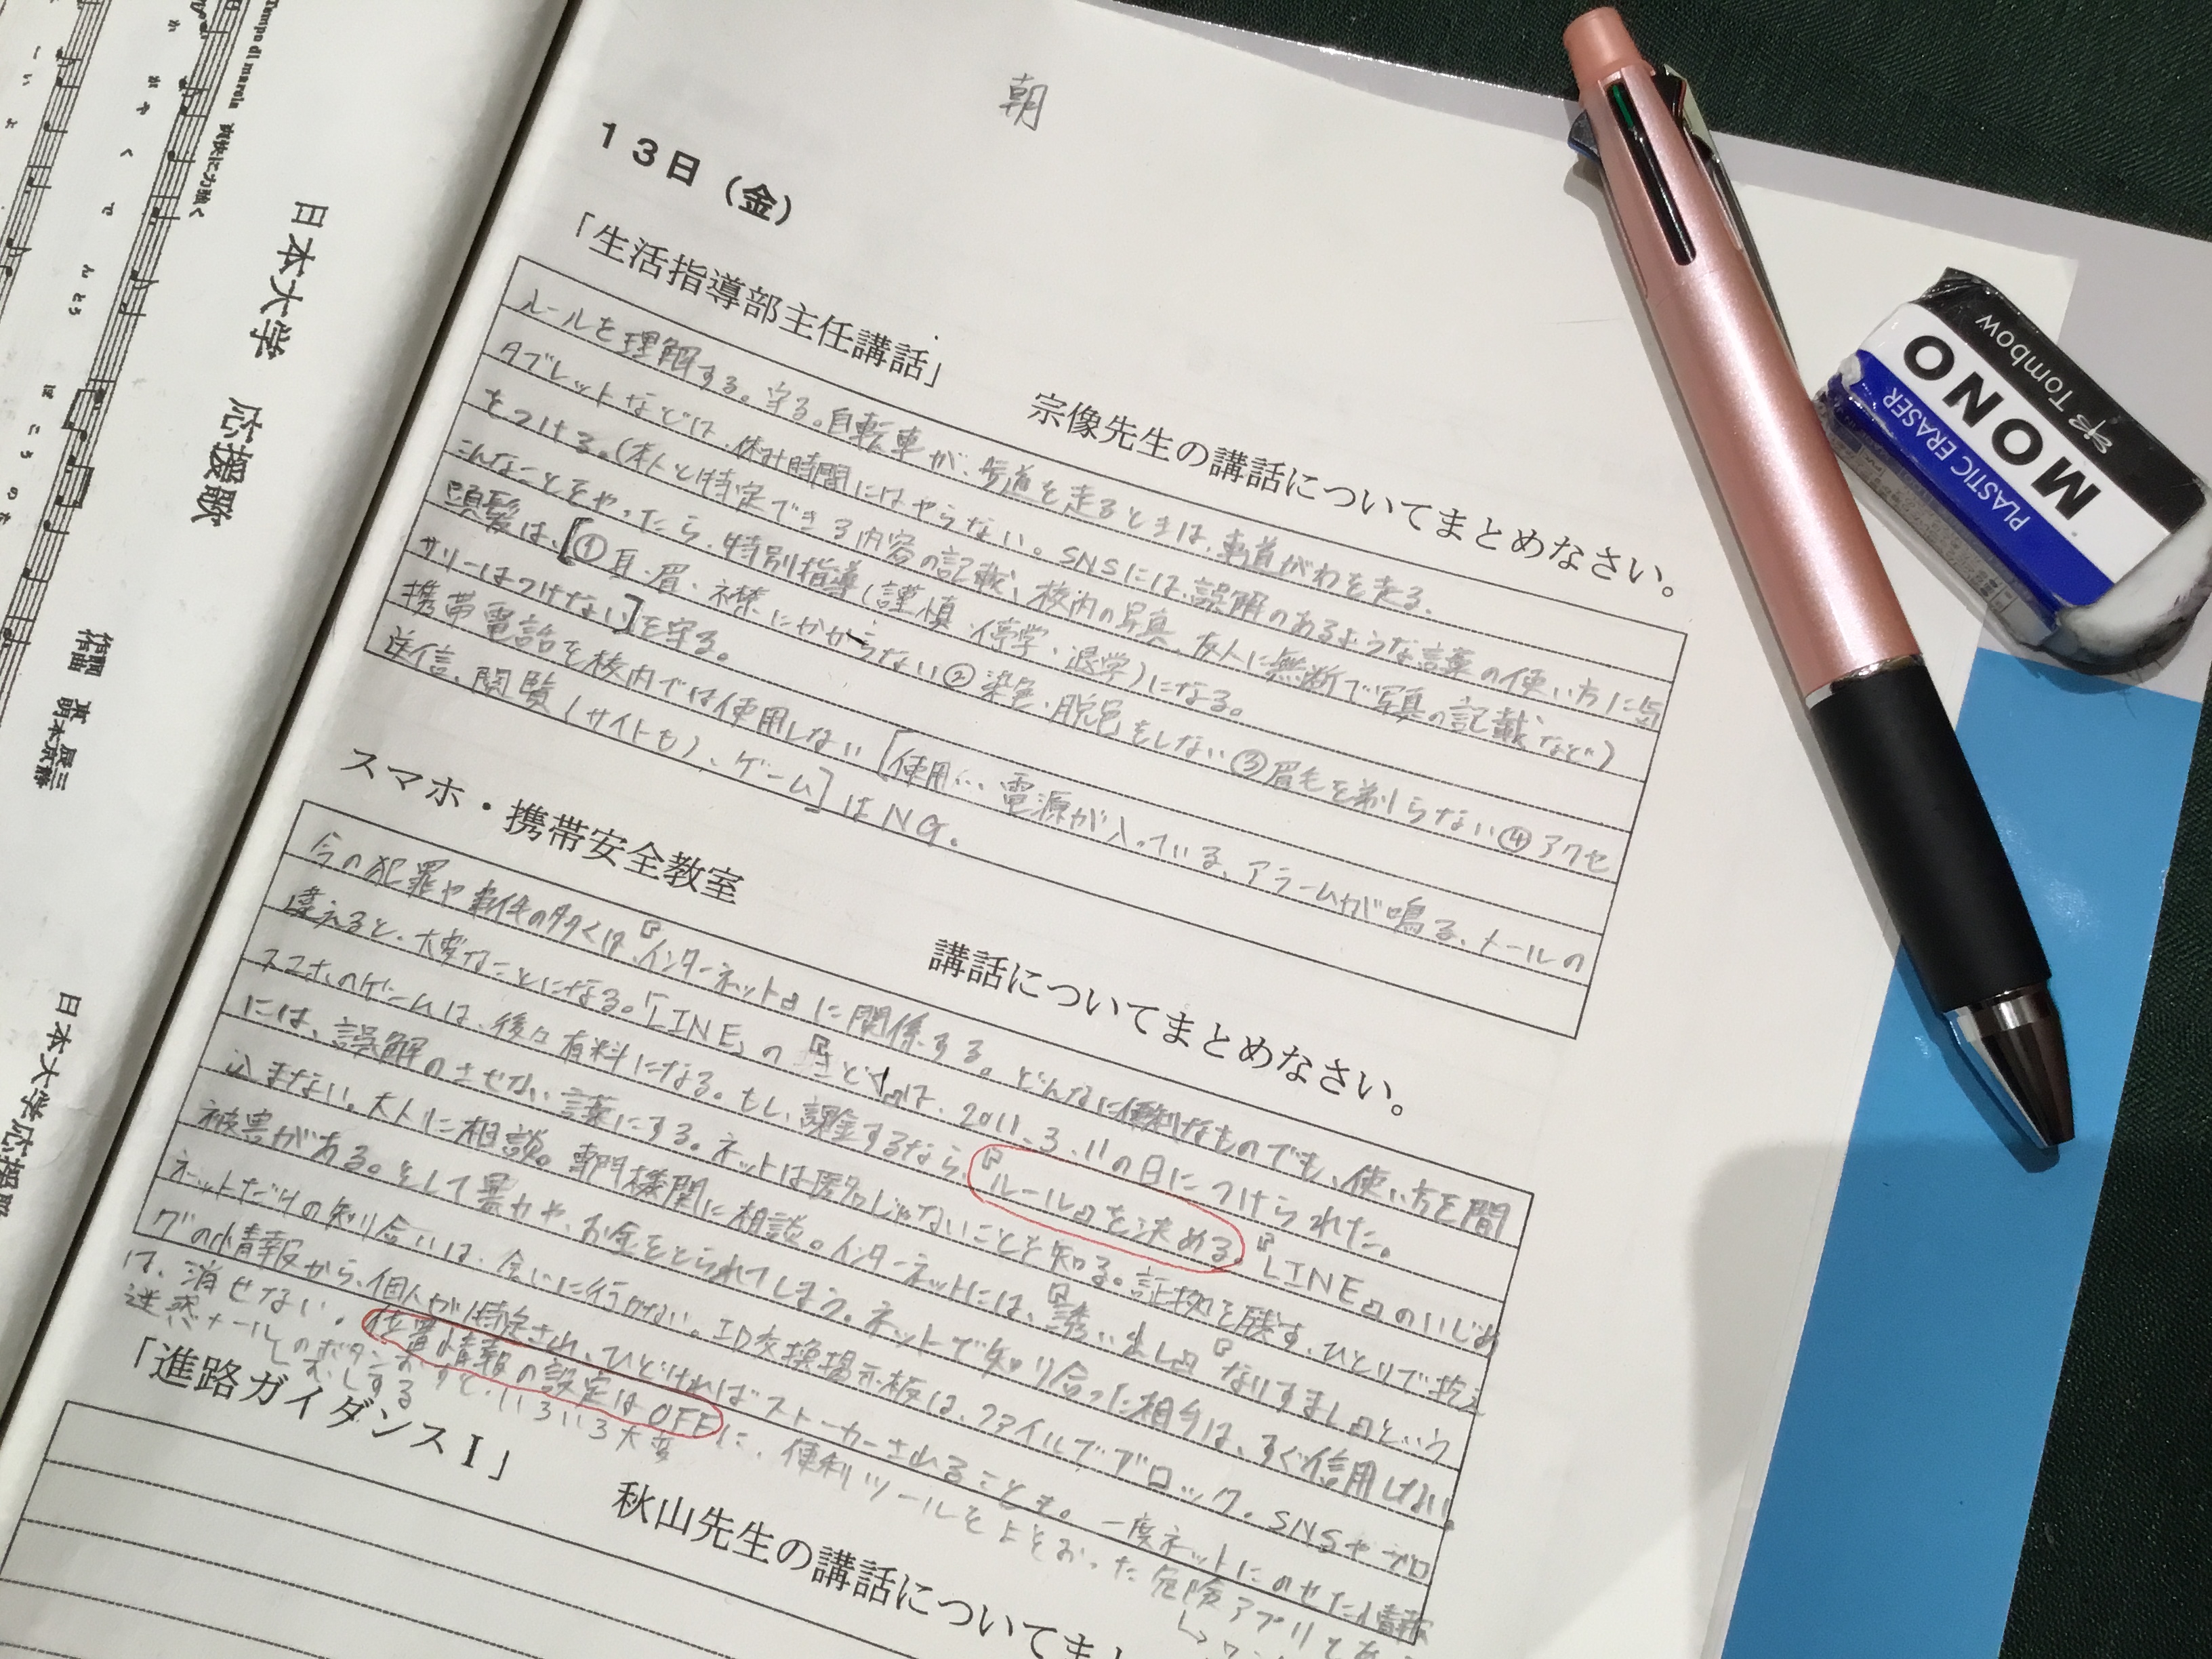 朝
13日（金）
「生活指導部主任講話」 宗像先生の講話についてまとめなさい。
ルールを理解する。守る。自転車が、歩道を走るときは、車道がわを走る。
タブレットなどは、休み時間にはやらない。SNSには、誤解のあるような言葉の使い方に気
をつける。(本人と特定できる内容の記載、校内の写真、友人に無断で写真の記載など)
こんなことをやったら、特別指導(謹慎・停学・退学)になる。
頭髪は、[①耳・眉・襟にかからない②染色・脱色をしない③眉毛を剃らない④アクセ
サリーはつけない]を守る。
携帯電話を校内では使用しない[使用…電源が入っている、アラームが鳴る、メールの
送信、閲覧(サイトも)、ゲーム]はNG。
スマホ・携帯安全教室 講話についてまとめなさい。
今の犯罪や事件の多くは『インターネット』に関係する。どんなに便利なものでも、使い方を間
違えると、大変なことになる。『LINE』の『既どく』は、2011.3.11の日につけられた。
スマホのゲームは、後々有料になる。もし、課金するなら、『ルール』を決める。『LINE』のいじめ
には、誤解のさせない言葉にする。ネットは匿名じゃないことを知る。証拠を残す、ひとりで抱え
込まない。大人に相談。専門機関に相談。インターネットには、『誘い出し』『なりすまし』という
被害がある。そして暴力や、お金をとられてしまう。ネットで知り合った相手は、すぐ信用しない。
ネットだけの知り合いは、会いに行かない。ID交換掲示板は、ファイルでブロック。SNSやブロ
グの情報から、個人が特定され、ひどければストーカーされることも。一度ネットにのせた情報
は、消せない。位置情報の設定はOFFに、便利ツールをよそおった危険アプリとか
迷惑メールのボタンおすと、いろいろ大変
むしする
「進路ガイダンスⅠ」 秋山先生の講話についてまと
日本大学 応援歌
Tempo di marcia
日本大学応援歌
Tombow
MONO
PLASTIC ERASER